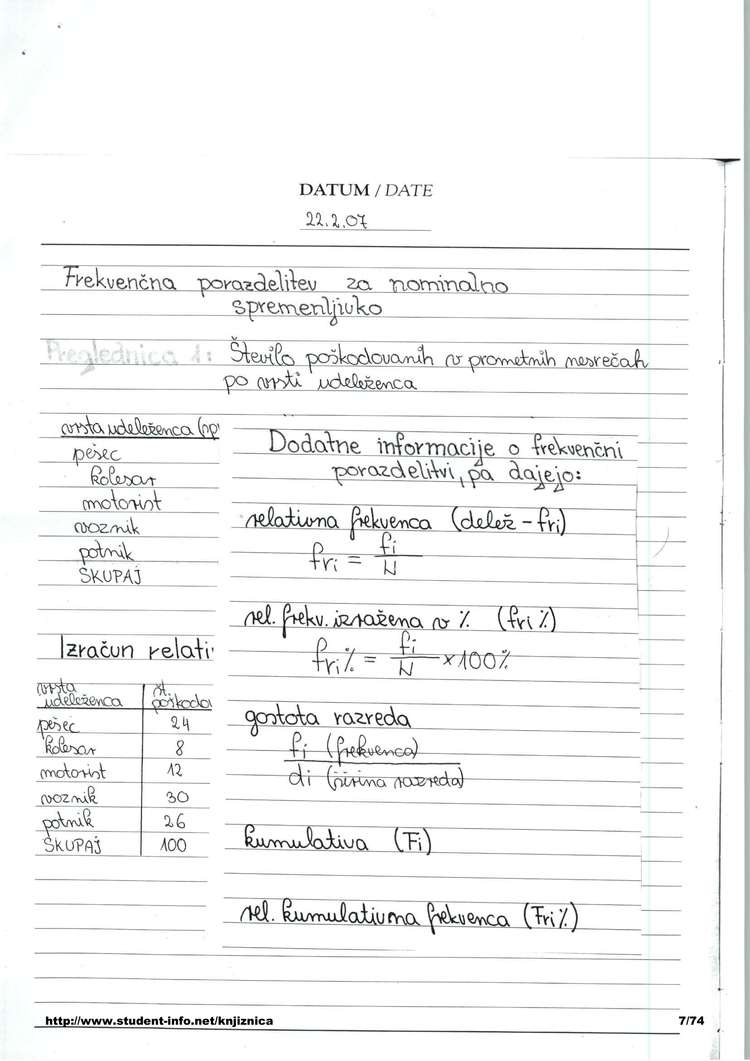 DATUM / DATE
22.2.07
Frekvenčna porazdelitev za nominalno
spremenljivko
Preglednica 1: Število poškodovanih v prometnih nesrečah
po vrsti udeleženca
vrsta udeleženca (op
pešec
kolesar
motorist
voznik
potnik
SKUPAJ
Izračun relati
vrsta udeleženca št. poškodo
pešec 24
kolesar 8
motorist 12
voznik 30
potnik 26
SKUPAJ 100
Dodatne informacije o frekvenčni
porazdelitvi, pa dajejo:
relativna frekvenca (delež - fri)
fri = fi / N
rel. frekv. izražena v % (fri %)
fri % = fi / N × 100 %
gostota razreda
fi (frekvenca)
di (širina razreda)
kumulativa (Fi)
rel. kumulativna frekvenca (Fri %)
http://www.student-info.net/knjiznica
7/74